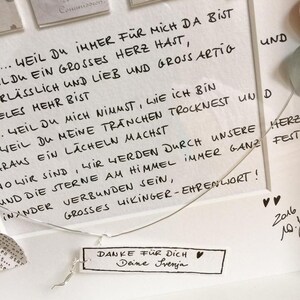 ... WEIL DU IMMER FÜR MICH DA BIST
IL DU EIN GROSSES HERZ HAST,
ERLÄSSLICH UND LIEB UND GROSSARTIG UND
ELES MEHR BIST
... WEIL DU MICH NIMMST, WIE ICH BIN
WEIL DU MEINE TRÄNCHEN TROCKNEST UND
RAUS EIN LÄCHELN MACHST
WO WIR SIND, WIR WERDEN DURCH UNSERE HERZ
UND DIE STERNE AM HIMMEL IMMER GANZ FEST
INANDER VERBUNDEN SEIN,
GROSSES WIKINGER-EHRENWORT!
♥♥
2016
DANKE FÜR DICH ♥
Deine Svenja